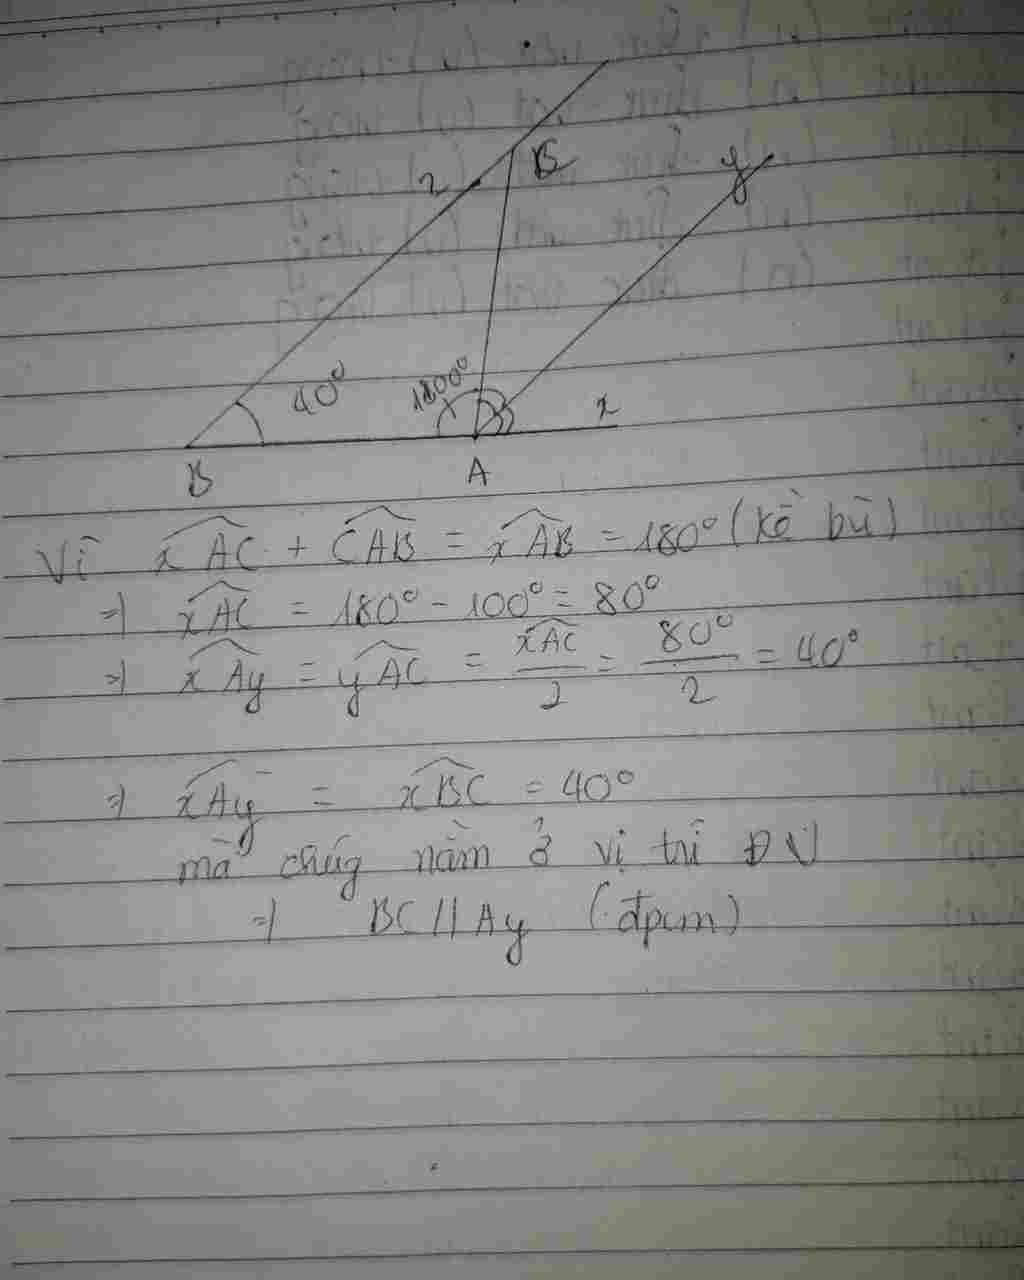 B
y
z
40°
1800°
x
B
A
Vì xAC + CAB = xAB = 180° (kề bù)
=> xAC = 180° - 100° = 80°
=> xAy = yAC = xAC/2 = 80°/2 = 40°
=> xAy = xBC = 40°
mà chúg nằm ở vị trí ĐV
=> BC // Ay (đpcm)